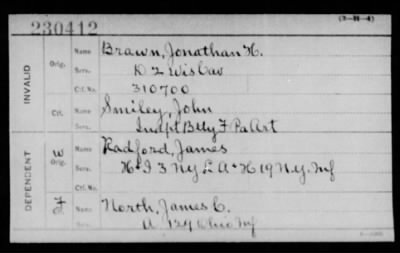 (3-H-4)
230412
INVALID
Orig.
Name Brawn, Jonathan H.
Serv. D 2 Wis Cav
Ctf. No. 310700
Ctf.
Name Smiley, John
Serv. Indpt Btty F Pa Art
DEPENDENT
W
Orig.
Name Radford, James
Serv. H & I 3 N.Y. L A & H 19 N.Y. Inf
Ctf. No.
F
Ctf.
Name North, James C.
Serv. A 129 Ohio Inf